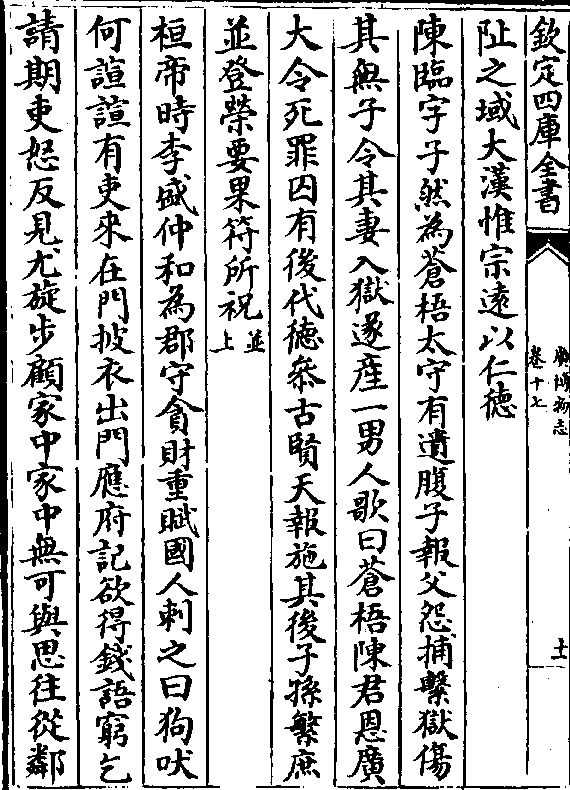 欽定四庫全書
廣博物志
卷十七
十
阯之域大漢惟宗遠以仁德
陳臨字子然為蒼梧太守有遺腹子報父怨捕繫獄傷
其無子令其妻入獄遂産一男人歌曰蒼梧陳君恩廣
大令死罪囚有後代德叅古賢天報施其後子孫繁庶
並登榮要果符所祝
並
上
桓帝時李盛仲和為郡守貪財重賦國人刺之曰狗吠
何諠諠有吏來在門披衣出門應府記欲得錢語窮乞
請期吏怒反見尤旋步顧家中家中無可與思往從鄰